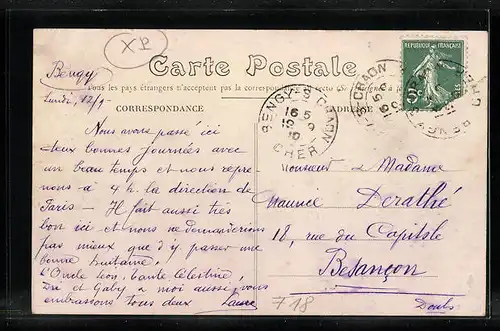 XP
Carte Postale
Bengy
Tous les pays étrangers n'acceptent pas la correspondance au recto
Lundi, 12/9
CORRESPONDANCE
RÉPUBLIQUE FRANÇAISE
5c
BENGY-S-CRAON
16 5
CHER
Nous avons passé ici
deux bonnes journées avec
un beau temps et nous repre-
nons à 4 h. la direction de
Paris - Il fait aussi très
bon ici et nous ne demanderions
pas mieux que d'y passer une
bonne huitaine.
L'Oncle Léon, tante Célestine,
et Gaby & moi aussi vous
embrassons tous deux Laure
Monsieur & Madame
Maurice Derathé
18, rue du Capitole
Besançon
Doubs
718